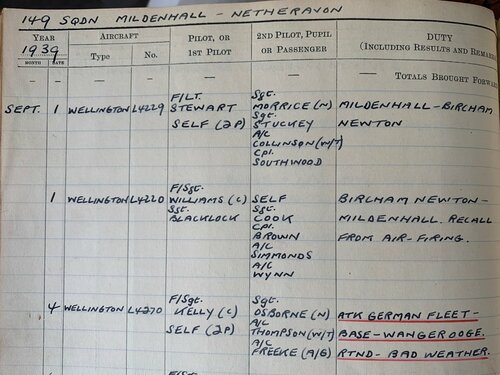 149 SQDN MILDENHALL - NETHERAVON
YEAR AIRCRAFT PILOT, OR 2ND PILOT, PUPIL DUTY
1939 Type No. 1ST PILOT OR PASSENGER (INCLUDING RESULTS AND REMAR
MONTH DATE
— — — — — — TOTALS BROUGHT FORWA
F/LT. Sgt.
SEPT. 1 WELLINGTON L4229 STEWART MORRICE (N) MILDENHALL-BIRCHAM
Sgt.
SELF (2P) STUCKEY NEWTON
A/C
COLLINSON (W/T)
Cpl.
SOUTHWOOD
F/Sgt.
1 WELLINGTON L4220 WILLIAMS (C) SELF BIRCHAM NEWTON-
Sgt. Sgt.
BLACKLOCK COOK MILDENHALL. RECALL
Cpl.
BROWN FROM AIR-FIRING.
A/C
SIMMONDS
A/C
WYNN
F/Sgt. Sgt.
4 WELLINGTON L4270 KELLY (C) OSBORNE (N) ATK GERMAN FLEET-
A/C
SELF (2P) THOMPSON (W/T) BASE-WANGEROOGE.
A/C
FREEKE (A/G) RTND- BAD WEATHER.